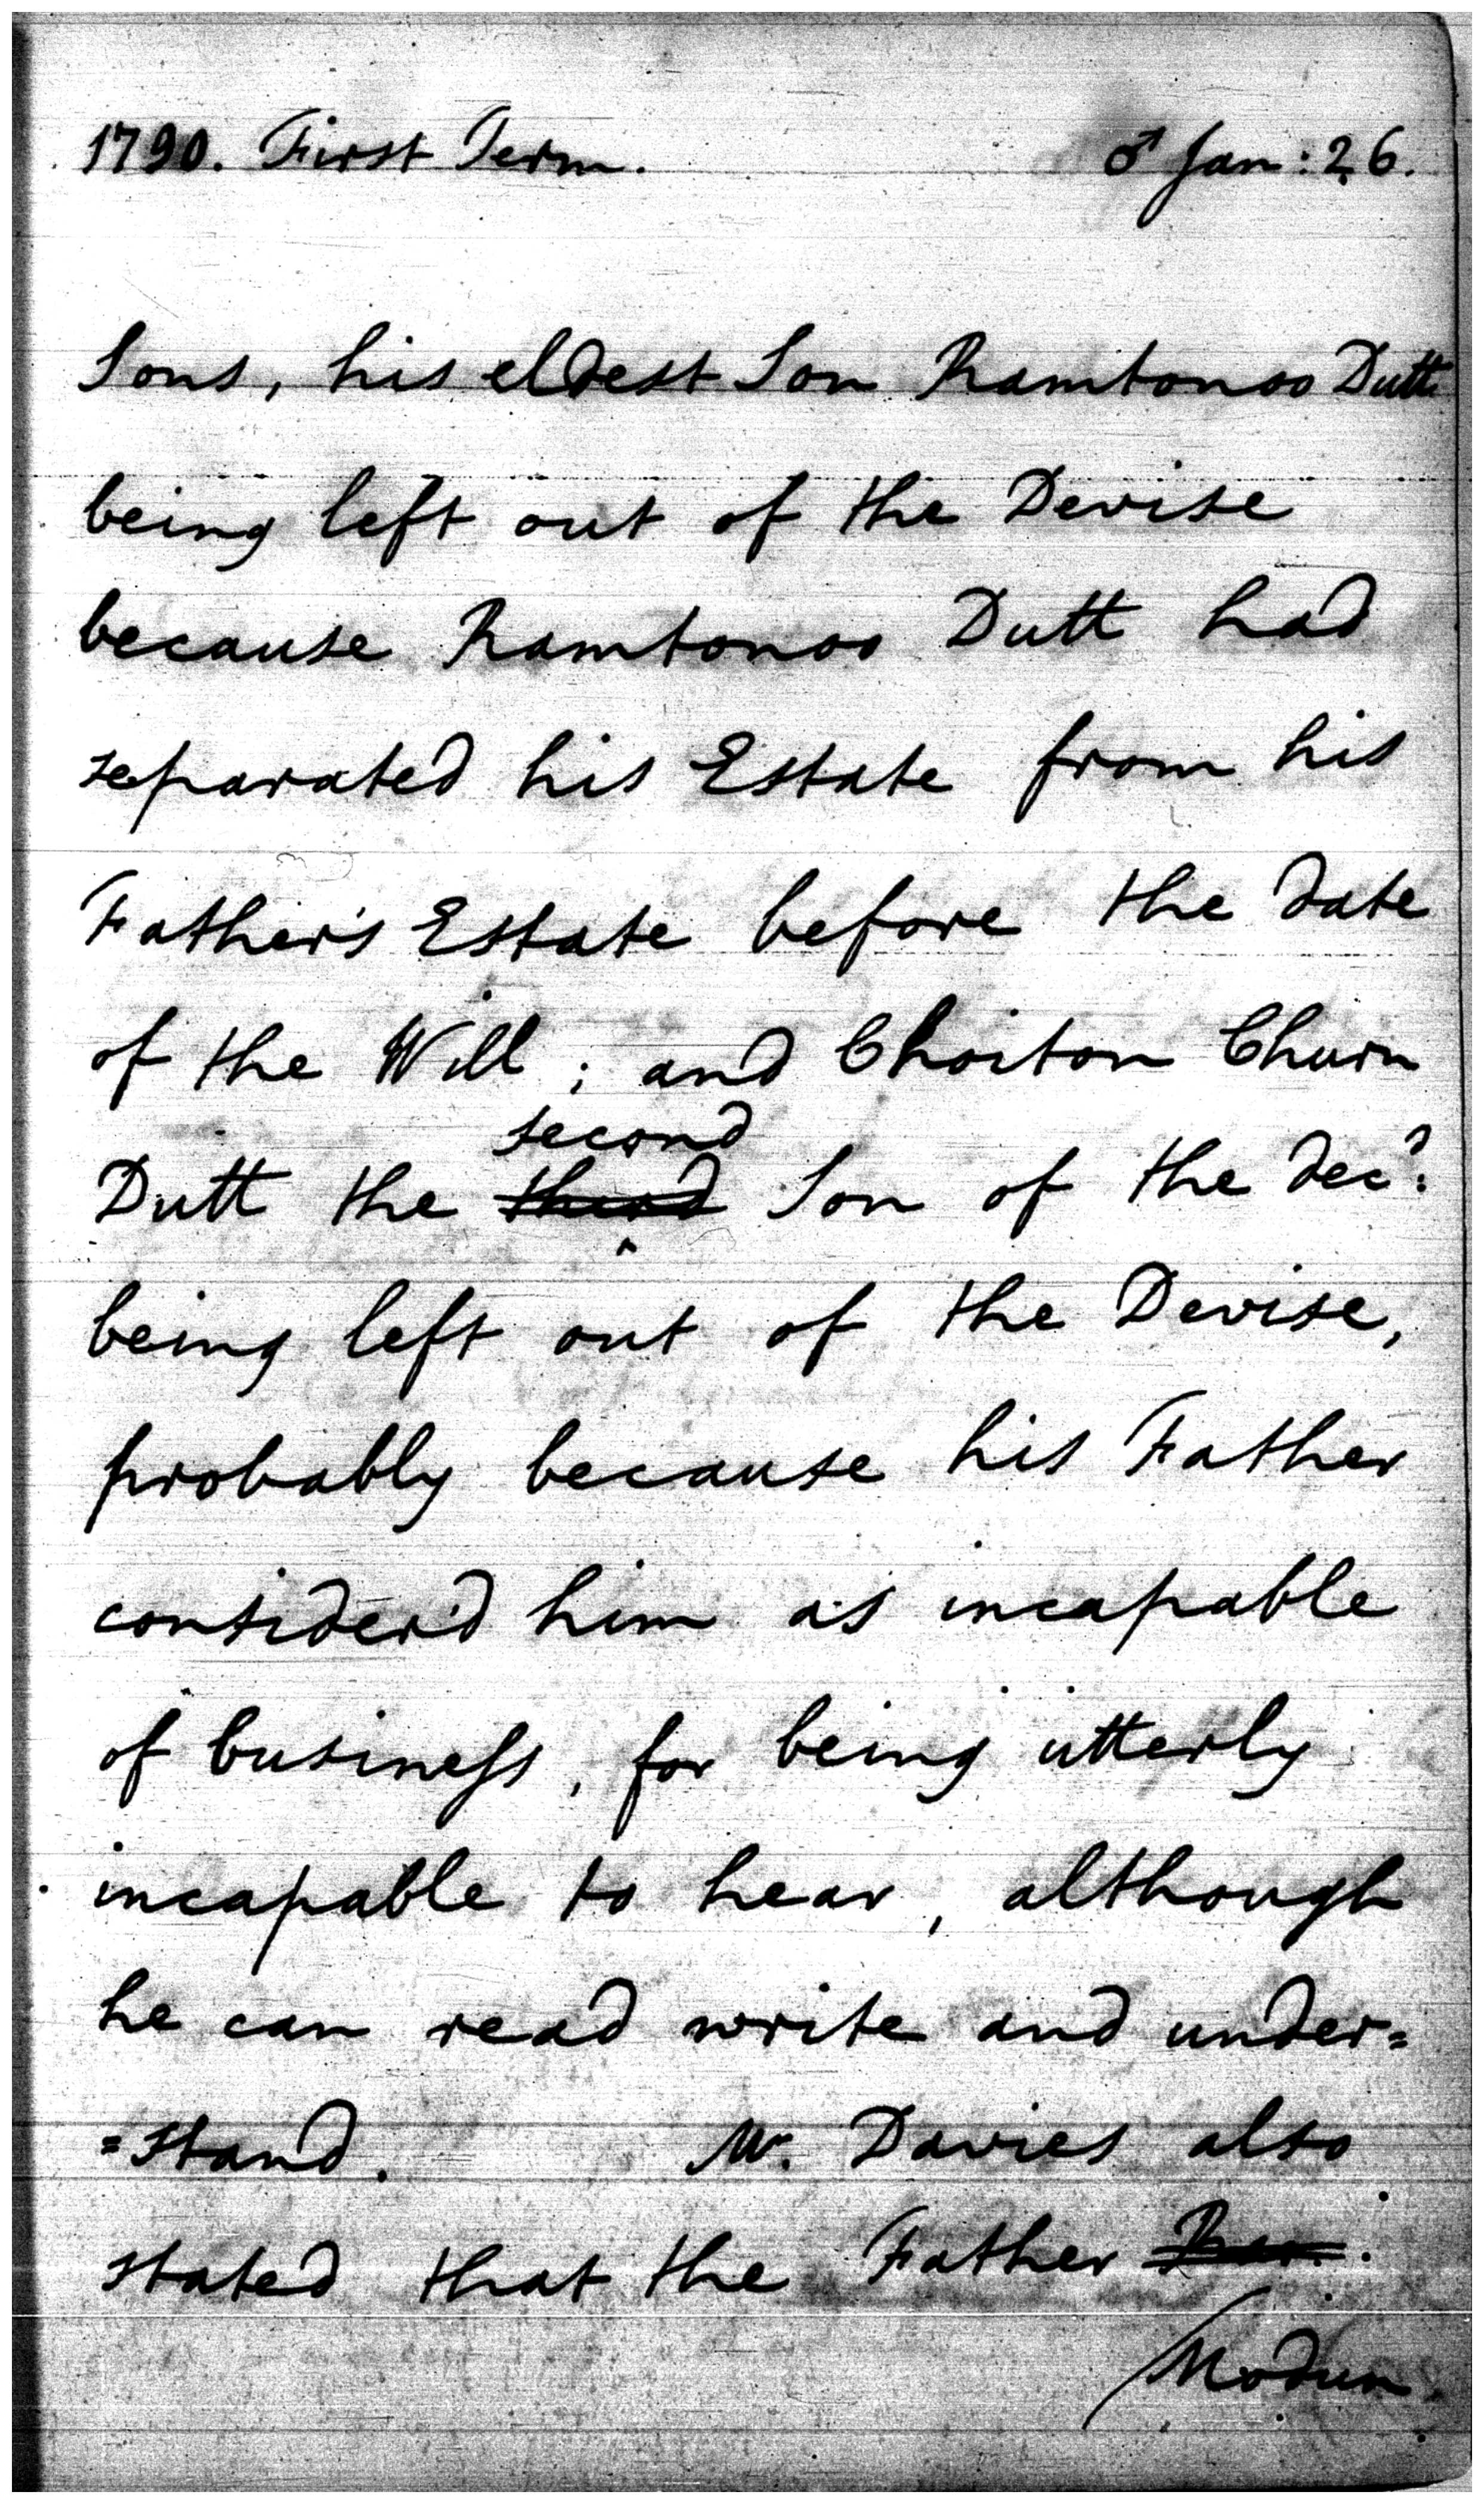 1790. First Term. ♂ Jan: 26.
Sons, his eldest Son Ramtonoo Dutt
being left out of the Devise
because Ramtonoo Dutt had
separated his Estate from his
Father's Estate before the date
of the Will; and Choiton Churn
second
Dutt the third Son of the decd:
being left out of the Devise,
probably because his Father
consider'd him as incapable
of business, for being utterly
incapable to hear, although
he can read write and under=
=stand. Mr. Davies also
stated that the Father
Modun